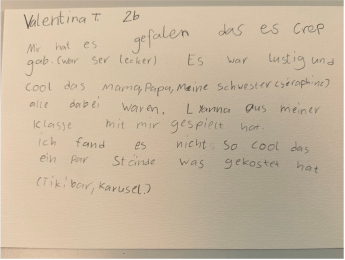 Valentina T. 2b
Mir hat es gefalen das es Crep
gab. (war ser lecker) Es war lustig und
cool das Mama, Papa, Meine Schwester (séraphine)
alle dabei waren, Lyanna aus meiner
Klasse mit mir gespielt hat.
Ich fand es nicht so cool das
ein par Stände was gekostet hat
(Tikibar, Karusel.)